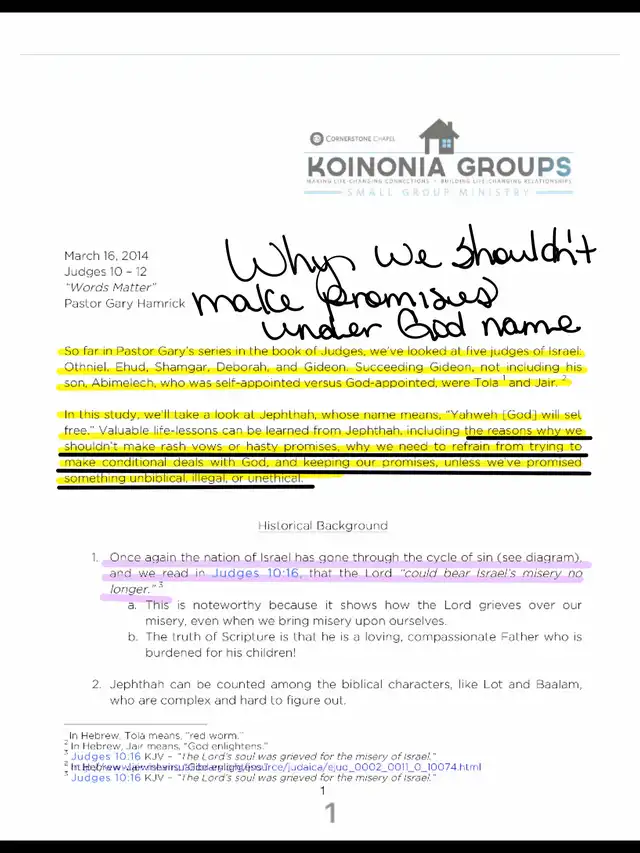 CORNERSTONE CHAPEL
KOINONIA GROUPS
MAKING LIFE-CHANGING CONNECTIONS • BUILDING LIFE-CHANGING RELATIONSHIPS
SMALL GROUP MINISTRY
Why we shouldn't
make promises
under God name
March 16, 2014
Judges 10 – 12
"Words Matter"
Pastor Gary Hamrick
So far in Pastor Gary's series in the book of Judges, we've looked at five judges of Israel:
Othniel, Ehud, Shamgar, Deborah, and Gideon. Succeeding Gideon, not including his
son, Abimelech, who was self-appointed versus God-appointed, were Tola 1 and Jair. 2
In this study, we'll take a look at Jephthah, whose name means, "Yahweh [God] will set
free." Valuable life-lessons can be learned from Jephthah, including the reasons why we
shouldn't make rash vows or hasty promises, why we need to refrain from trying to
make conditional deals with God, and keeping our promises, unless we've promised
something unbiblical, illegal, or unethical.
Historical Background
1. Once again the nation of Israel has gone through the cycle of sin (see diagram),
and we read in Judges 10:16, that the Lord "could bear Israel's misery no
longer." 3
a. This is noteworthy because it shows how the Lord grieves over our
misery, even when we bring misery upon ourselves.
b. The truth of Scripture is that he is a loving, compassionate Father who is
burdened for his children!
2. Jephthah can be counted among the biblical characters, like Lot and Baalam,
who are complex and hard to figure out.
1 In Hebrew, Tola means, "red worm."
2 In Hebrew, Jair means, "God enlightens."
3 Judges 10:16 KJV – "The Lord's soul was grieved for the misery of Israel."
3 Judges 10:16 KJV – "The Lord's soul was grieved for the misery of Israel."
1
1